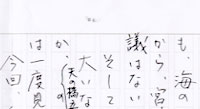 も、海の
から、宮
議はない
そして
大いな
か、
天の橋立の
は一度見
今回、